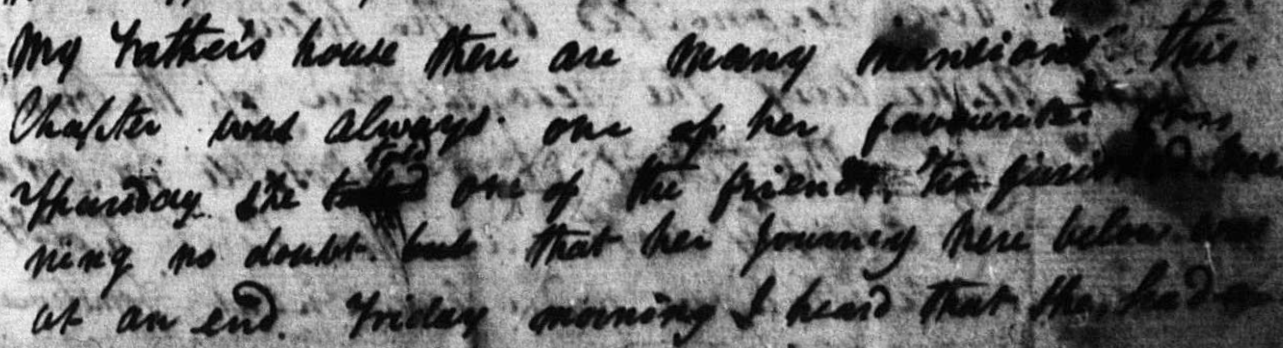 My Father's house there are many mansions" this.
Chapter was always one of her favourites
Thursday she told one of the friends, tis finished mea
ning no doubt but that her journey here below was
at an end. Friday morning I heard that she had